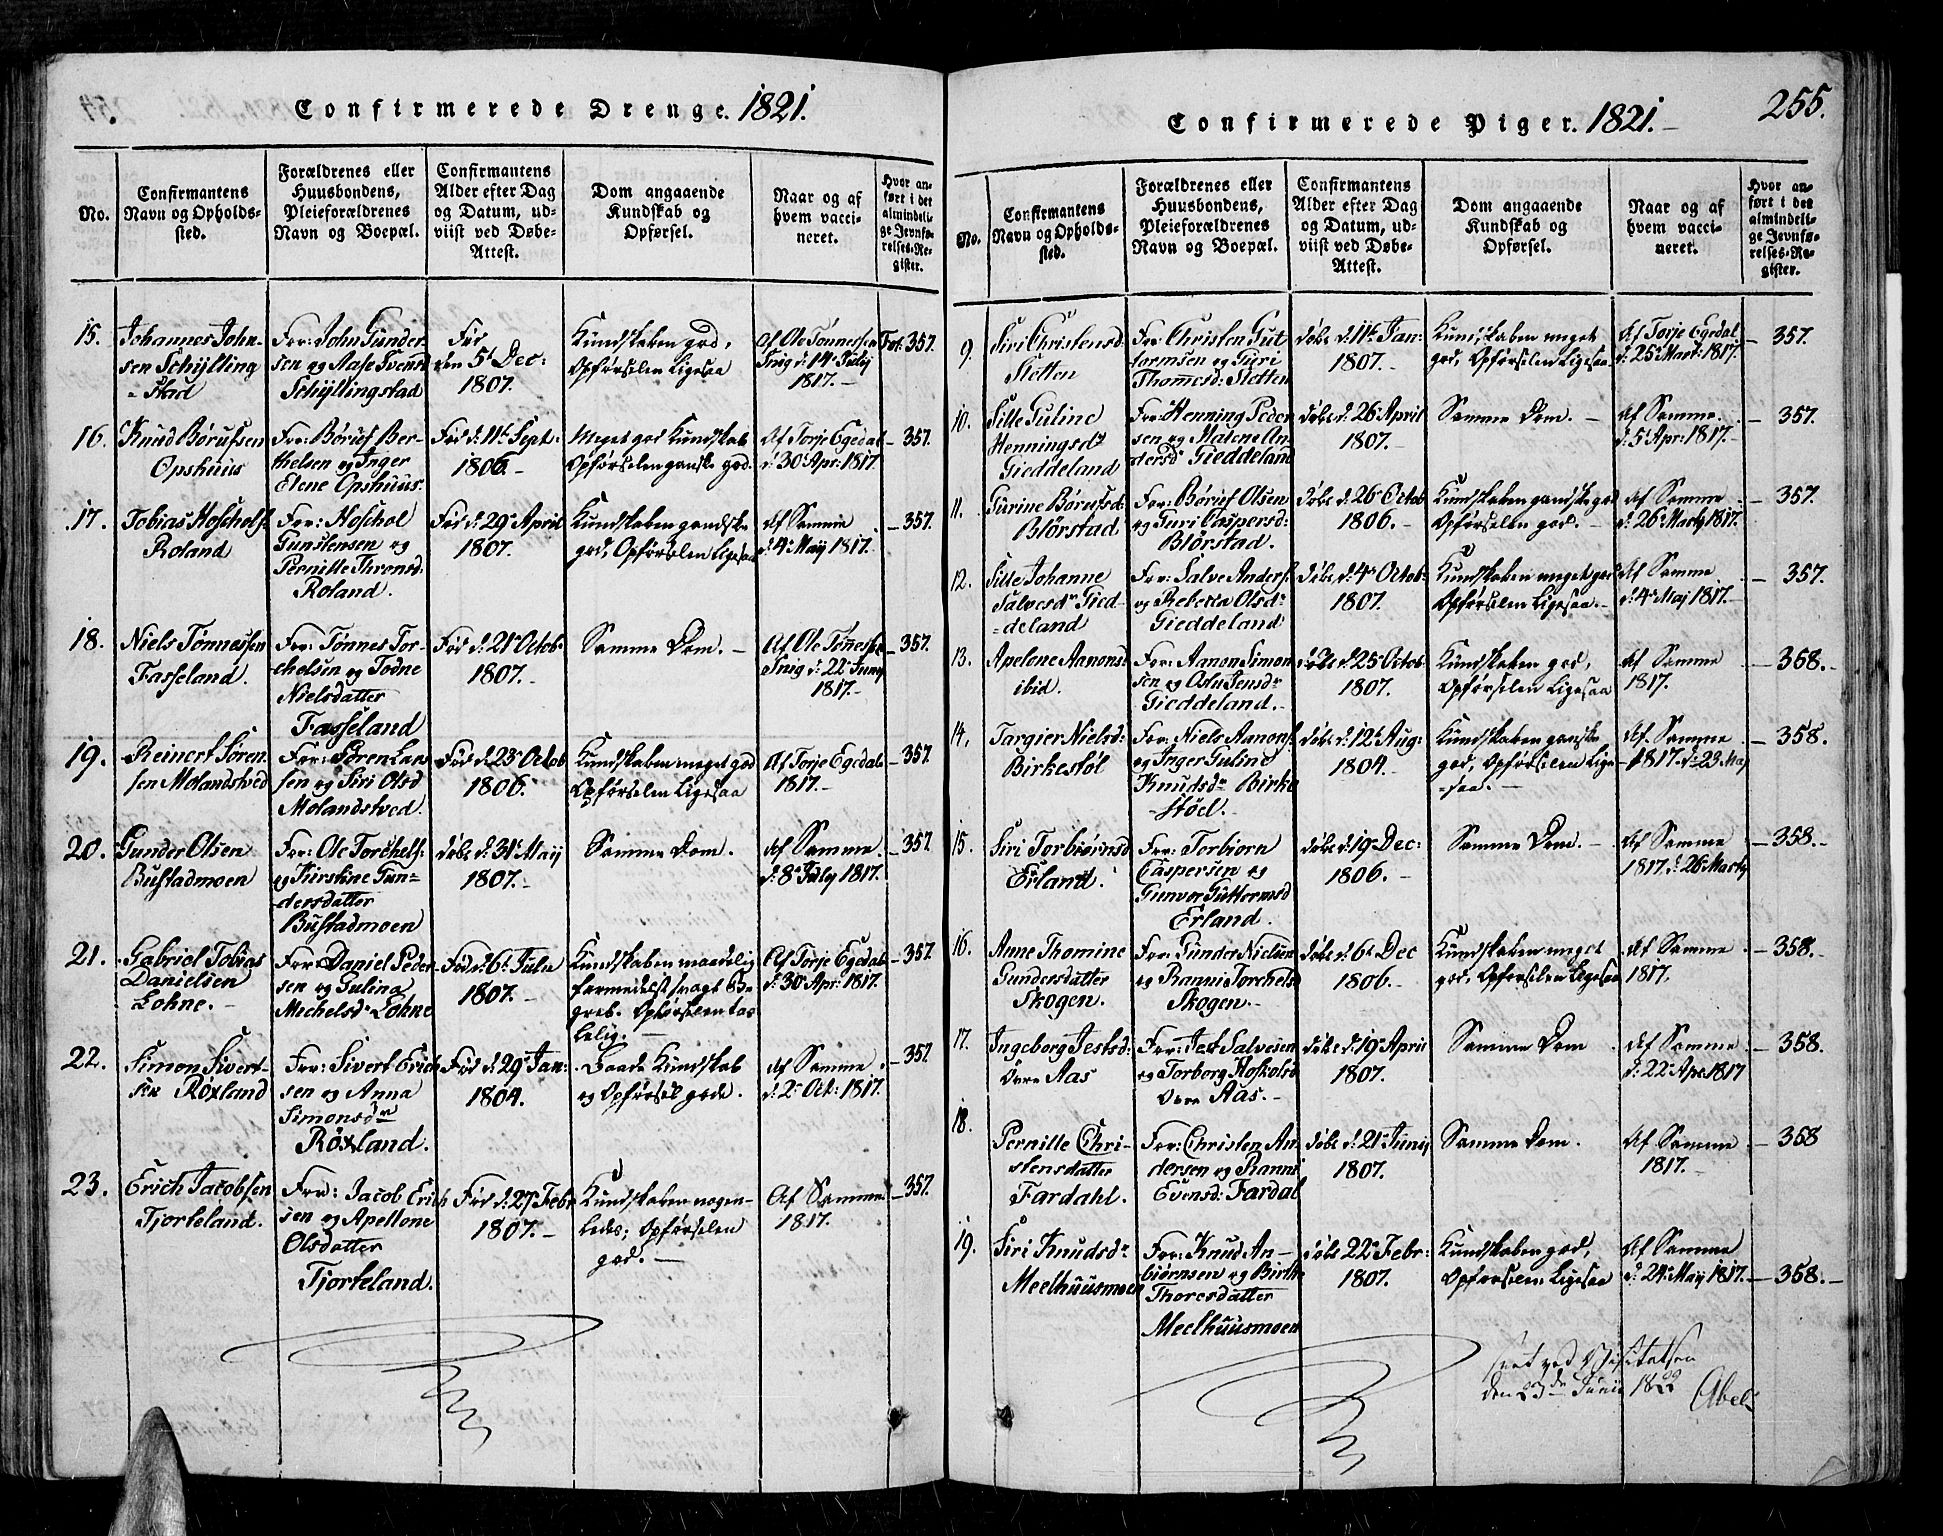 Confirmerede Drenge. 1821.
No.
Confirmantens
Navn og Opholds-
sted.
Forældrenes eller
Huusbondens,
Pleieforældrenes
Navn og Boepæl.
Confirmantens
Alder efter Dag
og Datum, ud-
viist ved Døbe-
Attest.
Dom angaaende
Kundskab og
Opførsel.
Naar og af
hvem vacci-
neret.
Hvor an-
ført i det
almindeli-
ge Jevnfø-
relses-Re-
gister.
15.
Johannes John-
sen Schÿlling
=stad
For: John Gunder
sen og Aase Svensd
Schÿllingstad
Fød
den 5t Dec:
1807.
Kundskaben god,
Opførselen Ligesaa
Af Ole Tønnessen
Tnig d: 14 July
1817.-
Fol. 357.
16.
Knud Børufsen
Opshuus
For: Børuf Ber-
thelsen og Inger
Elene Opshuus.
Fød d: 11t Sept:
1806.
Meget god Kundskab
Opførselen ganske god.
Af Torje Egedal
d: 30 Apr: 1817.
357.
17.
Tobias Hoschols
Roland
For: Hoschol
Gunstensen og
Pernille Thronsd:
Roland.
Fød d: 29 April
1807.
Kundskaben gandske
god, Opførselen Ligesaa
Af Samme
d: 4 Maÿ 1817.
357.
18.
Niels Tønnessen
Fasseland.
For: Tønnes Tor-
chelsen og Todne
Nielsdatter
Fasseland
Fød d: 21 Octob
1807.-
Samme Dom. -
Af Ole Tønnesse
Tnig d: 22 Juny
1817.-
357.
19.
Reinert Søren
sen Molandsved
For: Søren Lar
sen og Siri Olsd
Molandsved.
Fød d: 23 Octob
1806.
Kundskaben meget god
Opførselen Ligesaa
Af Torje Egedal
1817.-
357.
20.
Gunder Olsen
Bustadmoen
For: Ole Torchels:
og Kirstine Gun-
dersdatter
Bustadmoen
døbe d: 31 Maÿ
1807.-
Samme Dom.
Af Samme
d: 8 July 1817.
357.
21.
Gabriel Tobias
Danielsen
Lohne. -
For: Daniel Peder
sen og Gulina
Mechelsd. Lohne
Fød d: 6t Juln
1807.-
Kundskaben maadelig
formedelst svagt Be
greb. Opførselen tas
lelig. -
Af Torje Egedal
d: 30 Apr: 1817.
357.
22.
Simon Sivert-
sen Röxland
For: Sivert Erich
sen og Anna
Simonsdr
Röxland.
Fød d: 29 Jan:
1804.
Baade Kundskab
og Opførsel gode.
Af Samme
d: 2 Oct: 1817.
357
23.
Erich Jacobsen
Tjorteland.
For: Jacob Erich
sen og Apellone
Olsdatter
Tjorteland.
Fød d: 27 Febr
1807.-
Kundskaben nogen-
ledes; Opførselen
god. -
Af Samme
1817.
357.
Confirmerede Piger. 1821.-
255.
No.
Confirmantens
Navn og Opholds-
sted.
Forældrenes eller
Huusbondens,
Pleieforældrenes
Navn og Boepæl.
Confirmantens
Alder efter Dag
og Datum, ud-
viist ved Døbe-
Attest.
Dom angaaende
Kundskab og
Opførsel.
Naar og af
hvem vacci-
neret.
Hvor an-
ført i det
almindeli-
ge Jevnfø-
relses-Re-
gister.
9.
Siri Christensd
Sletten
For Christen Gut
formsen og Guri
Thomesd: Sletten
døbe d: 11t Jan:
1807.-
Kundskaben meget
god, Opførselen Ligesaa.
Af Torje Egedal
d: 25 Mart: 1817.
357.
10.
Sille Guline
Henningsdr
Gieddeland
For: Henning Peder
sen og Malene An
dersdr Gieddeland
døbe d: 26 April
1807.
Samme Dom. -
Af Samme
d: 5 Apr: 1817.-
357.
11.
Gurine Børufsd:
Blørstad
For: Børuf Olsen
og Guri Caspersd:
Blørstad.
døbe d: 26 Octob
1806.-
Kundskaben gandske god
Opførselen god. -
Af Samme
d: 26 Marty 1817.
357.
12.
Sille Johanne
Salvesdr Gied-
=deland
For: Salve Anders:
og Rebekka Olsdr
Gieddeland
døbe d: 4 Octob
1807.
Kundskaben meget god
Opførselen Ligesaa. -
Af Samme
d: 4 Maj 1817.-
357.
13.
Apelone Aanons:
ibid.
For: Aanon Simon
sen og Aslu Jensdr
Gieddeland.
døbe d: 25 Octob
1807.
Kundskaben god,
Opførselen Ligesaa
Af Samme
1817.
358.
14.
Targier Nielsd:
Birkestøl
For: Niels Aanons:
og Inger Guline
Knudsdr Birke
=støel.
døbe d: 12t Aug:
1804.
Kundskaben ganske
god, Opførselen Lige
=saa. -
Af Samme
1817. d: 23 Maj
358.
15.
Siri Torbiørnsd
Erland.
For: Torbiorn
Caspersen og
Gunvor Guttormsd
Erland.
døbe d: 19 Dec:
1806.-
Samme Dom. -
Af Samme
1817. d: 26 Marty
358.
16.
Anne Thomine
Gundersdatter
Skogen.
For: Gunder Nielsen
og Ranni Torchelsd
Skogen. -
døbe d: 6t Dec
1806.-
Kundskaben meget
god, Opførselen Ligesaa
Af Samme
1817.
358.
17.
Ingeborg Jestsd:
Øvre Aas
For: Jest Salvesen
og Torborg Hoskolsd
Øvre Aas. -
døbe d: 19 April
1807.
Samme Dom
Af Samme
d: 22 Apr: 1817
358.
18.
Pernille Chri-
stensdatter
Fardahl.
For: Christen An
dersen og Ranni
Evensd: Fardal
døbe d: 21 Juny
1807.
Samme Dom.
Af Samme
1817. -
358
19.
Siri Knudsdr
Meelhuusmoen
For: Knud An-
biørnsen og Birthe
Thoresdatter
Meelhuusmoen
døbe 22 Febr:
1807.
Kundskaben god,
Opførselen Ligesaa
Af Samme
d: 24 Maÿ 1817.
358.-
seet ved Visitatsen
den 23de Junii 1822 Abel